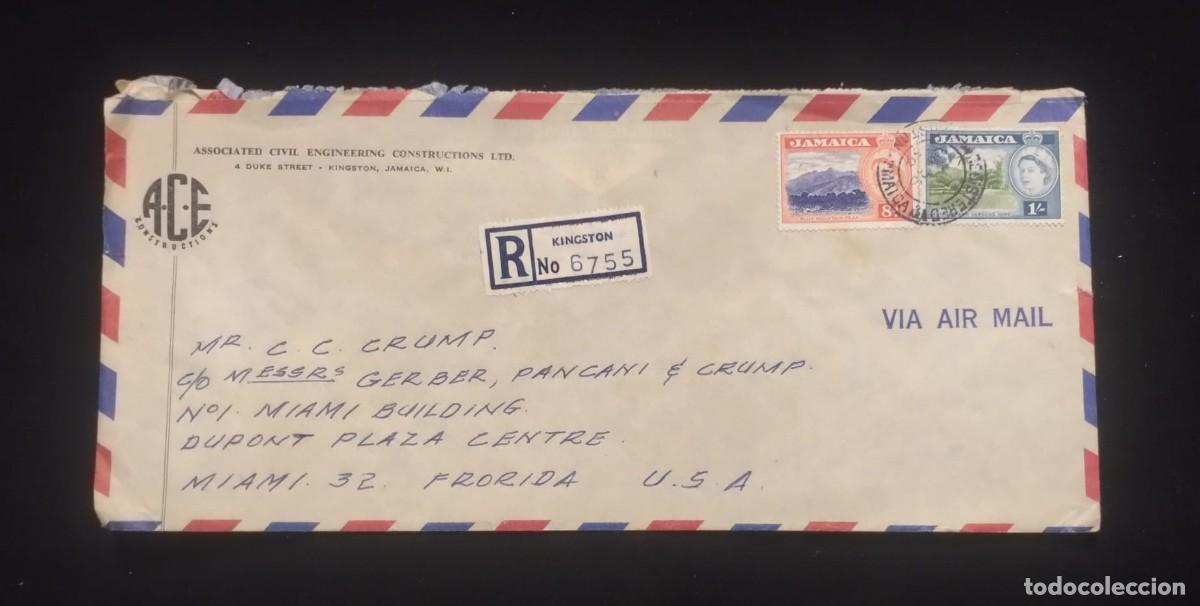 ASSOCIATED CIVIL ENGINEERING CONSTRUCTIONS LTD.
4 DUKE STREET - KINGSTON, JAMAICA, W.I.
A·C·E
CONSTRUCTIONS
JAMAICA
8
BLUE MOUNTAIN PEAK
JAMAICA
1/-
REGISTERED
JAMAICA
R
KINGSTON
No 6755
VIA AIR MAIL
MR. C. C. CRUMP.
C/O MESSRS GERBER, PANCANI & CRUMP.
No1. MIAMI BUILDING.
DUPONT PLAZA CENTRE.
MIAMI. 32. FRORIDA U.S.A.
todocoleccion